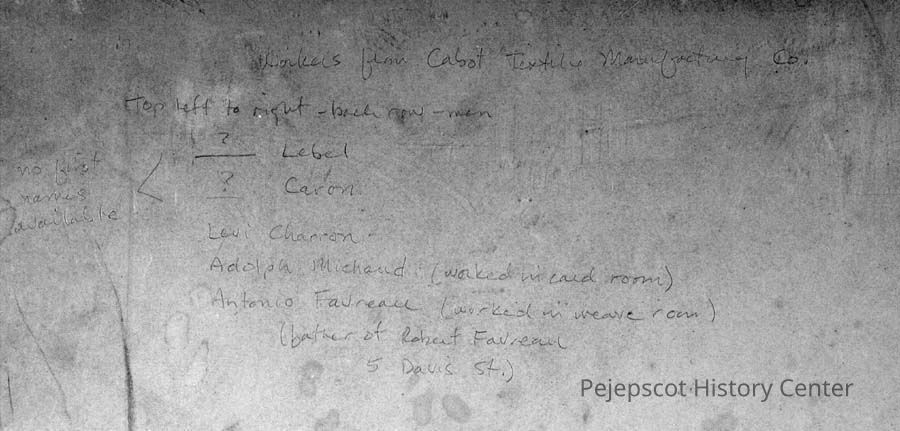 Workers from Cabot Textile Manufacturing Co.
Top left to right - back row - men
? Lebel
? Caron
no first
names
available
Levi Charron
Adolph Michaud (worked in card room)
Antonio Favreau (worked in weave room)
(father of Robert Favreau
5 Davis St.)
Pejepscot History Center